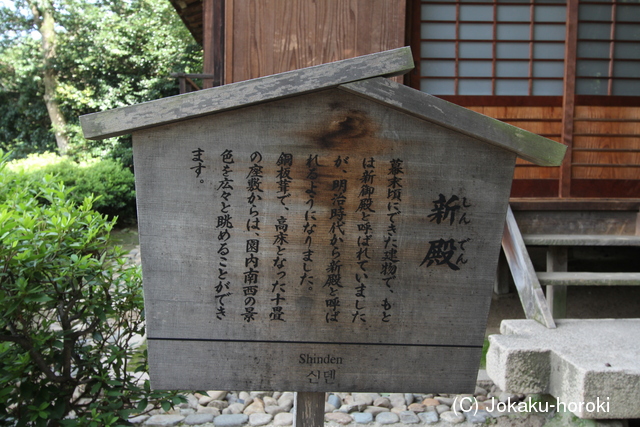 新殿
しんでん
幕末頃にできた建物で、もと
は新御殿と呼ばれていました
が、明治時代から新殿と呼ば
れるようになりました。
銅板葺で、高床となった十畳
の座敷からは、園内南西の景
色を広々と眺めることができ
ます。
Shinden
신덴
(C) Jokaku-horoki